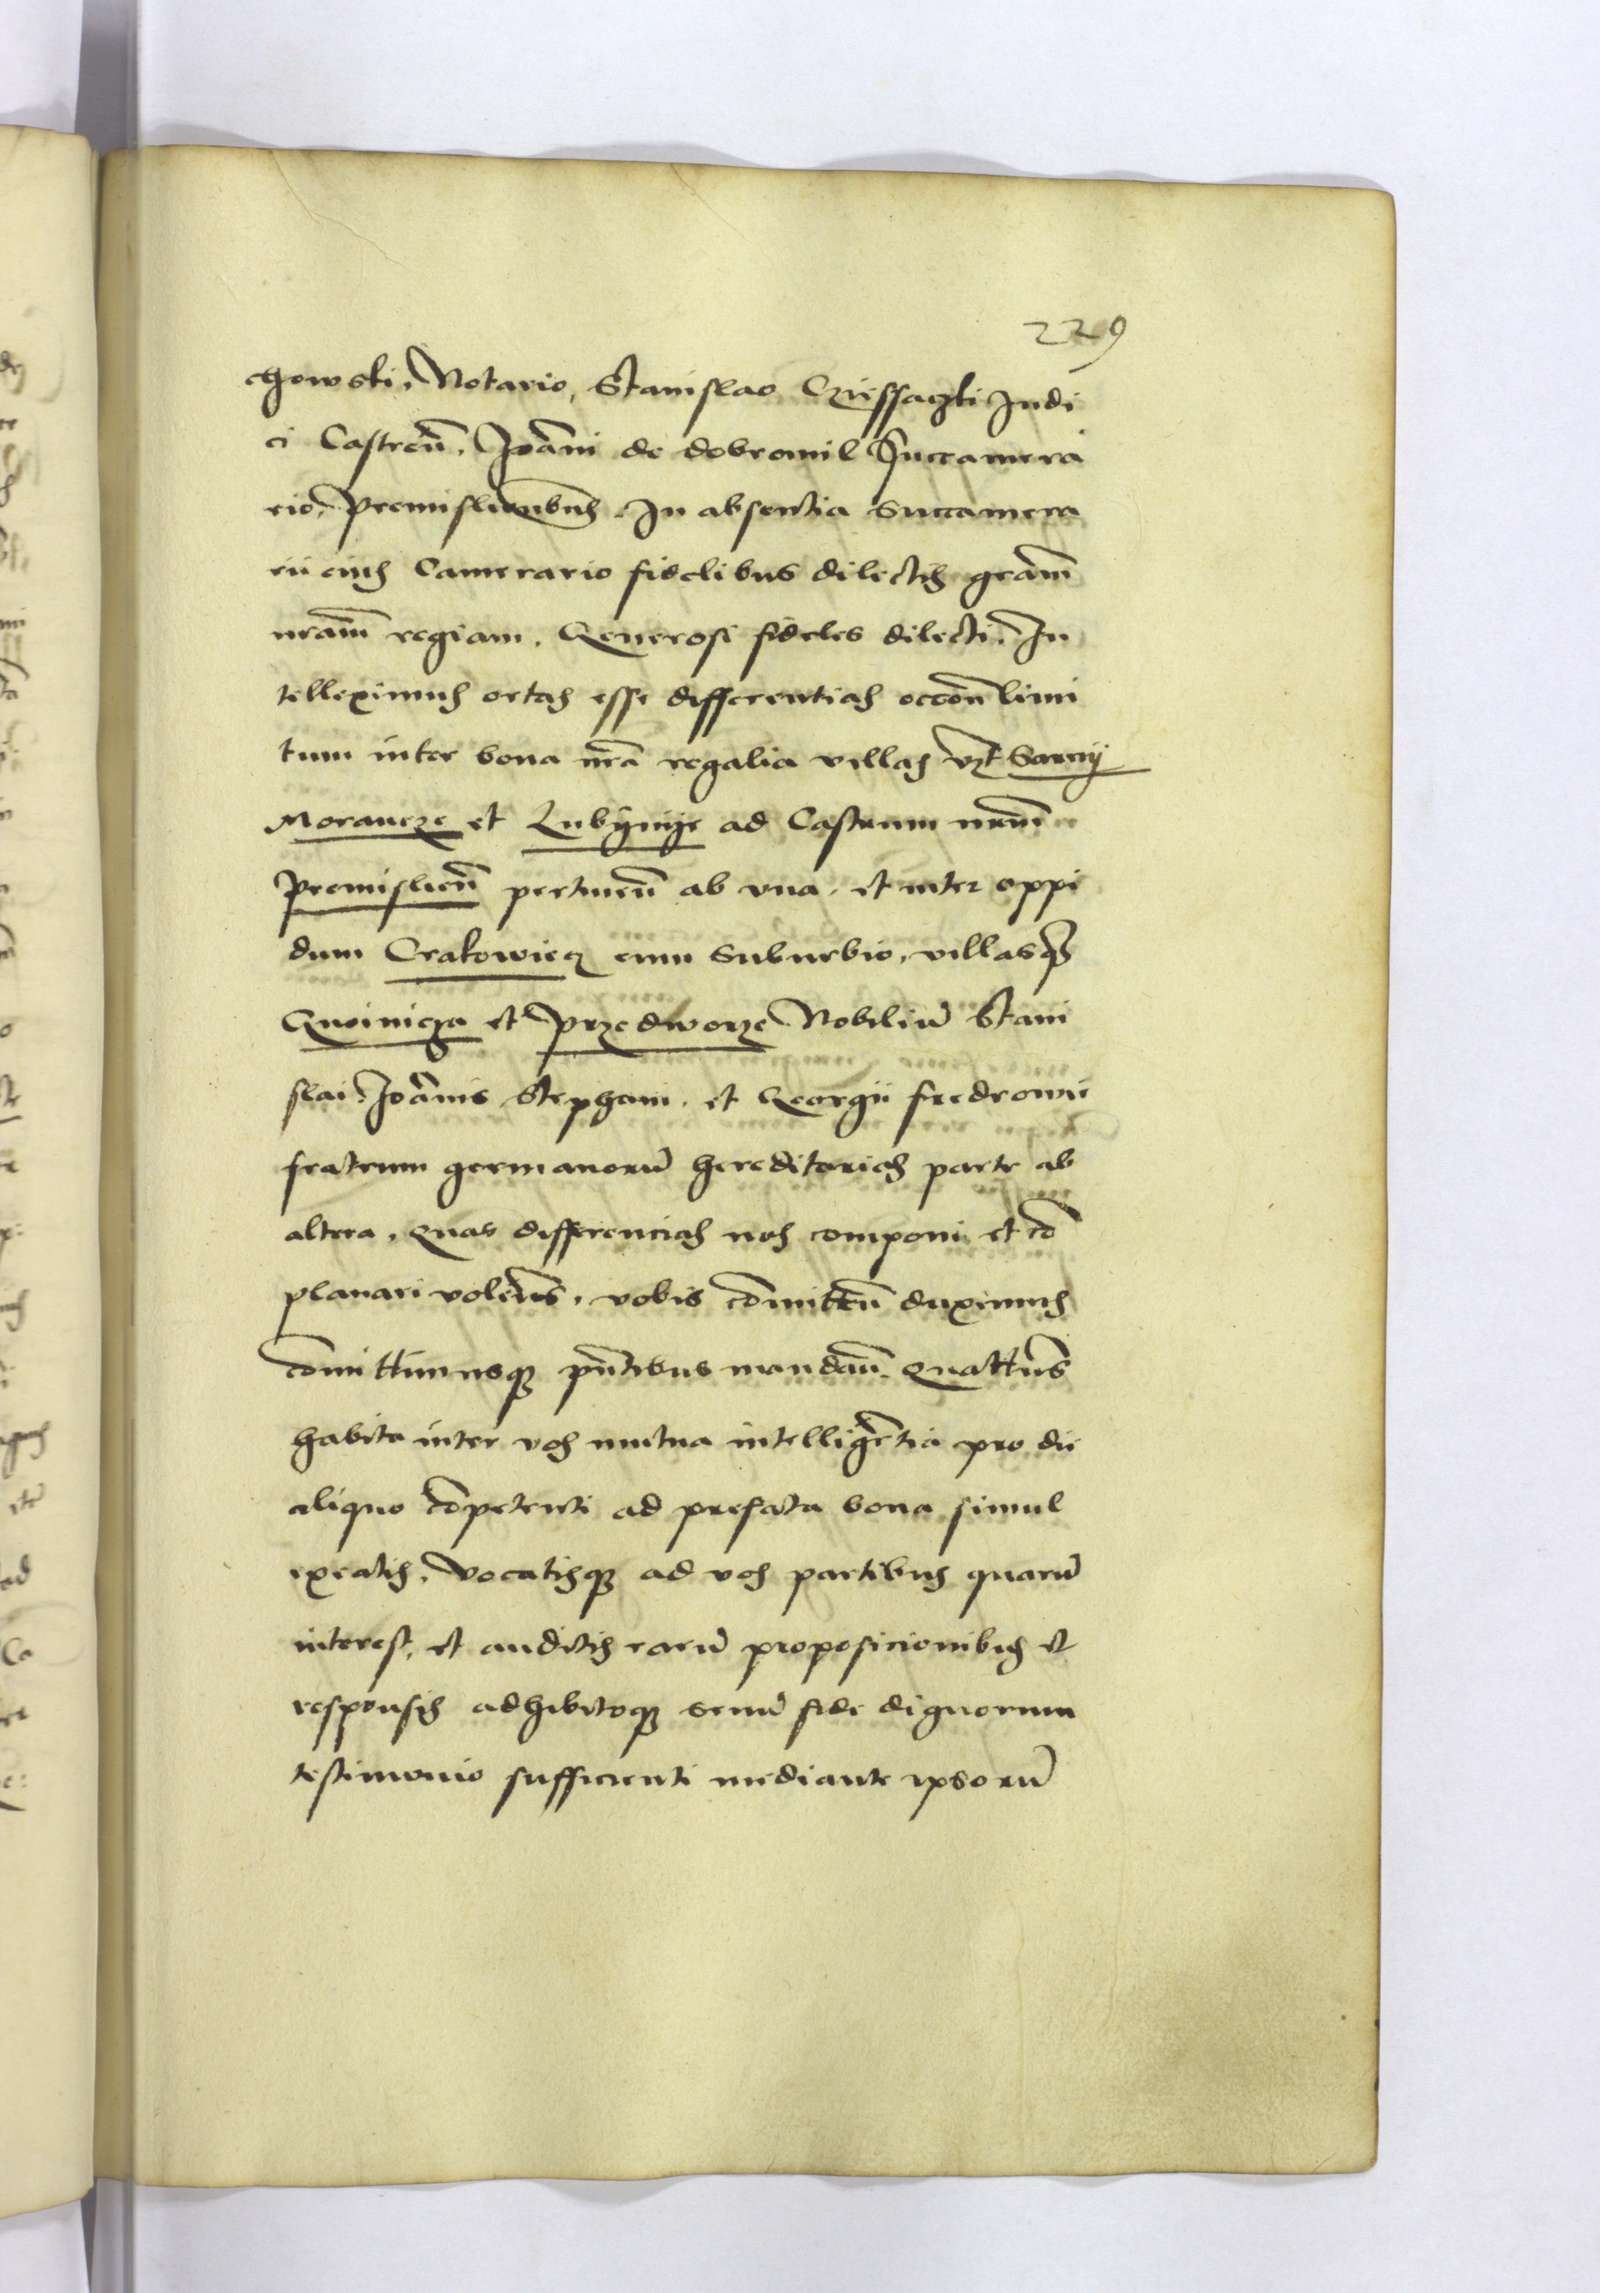 229
chowski, Notario, Stanislao Judi
ci Castreñ. Joāni de dobromil Succamera
rio, Premisliensibus In absentia Succamera
rii eius Camerario fidelibus dilectis grām
nrām regiam. Generosi fideles dilecti. In
telleximus ortas esse differentias occōn limi
tum inter bona nrā regalia villas vzt Sarny
Morancze et Lubynye ad Castrum nrūm
Premislieñ pertineñ ab vna. et inter oppi
dum Crakowiecz cum Suburbio, villasqȝ
Gnoinicza et Przedworze Nobiliū Stani
slai Joānis Stephani. et Georgii fredrowie
fratrum germanorū hereditarias parte ab
altera. Quas differencias nos componi et cō
planari volētes. vobis cōmitteñ duximus
cōmittimusqȝ pñtibus mandañ. Quatteñs
habita inter vos mutua intelligētia pro die
aliquo cōpetenti ad prefata bona simul
exeatis. Vocatisqȝ ad vos partibus quarū
interest, et auditis earū proposicionibus et
responsis adhibitoqȝ senū fide dignorum
testimonio sufficienti mediante ipsorū